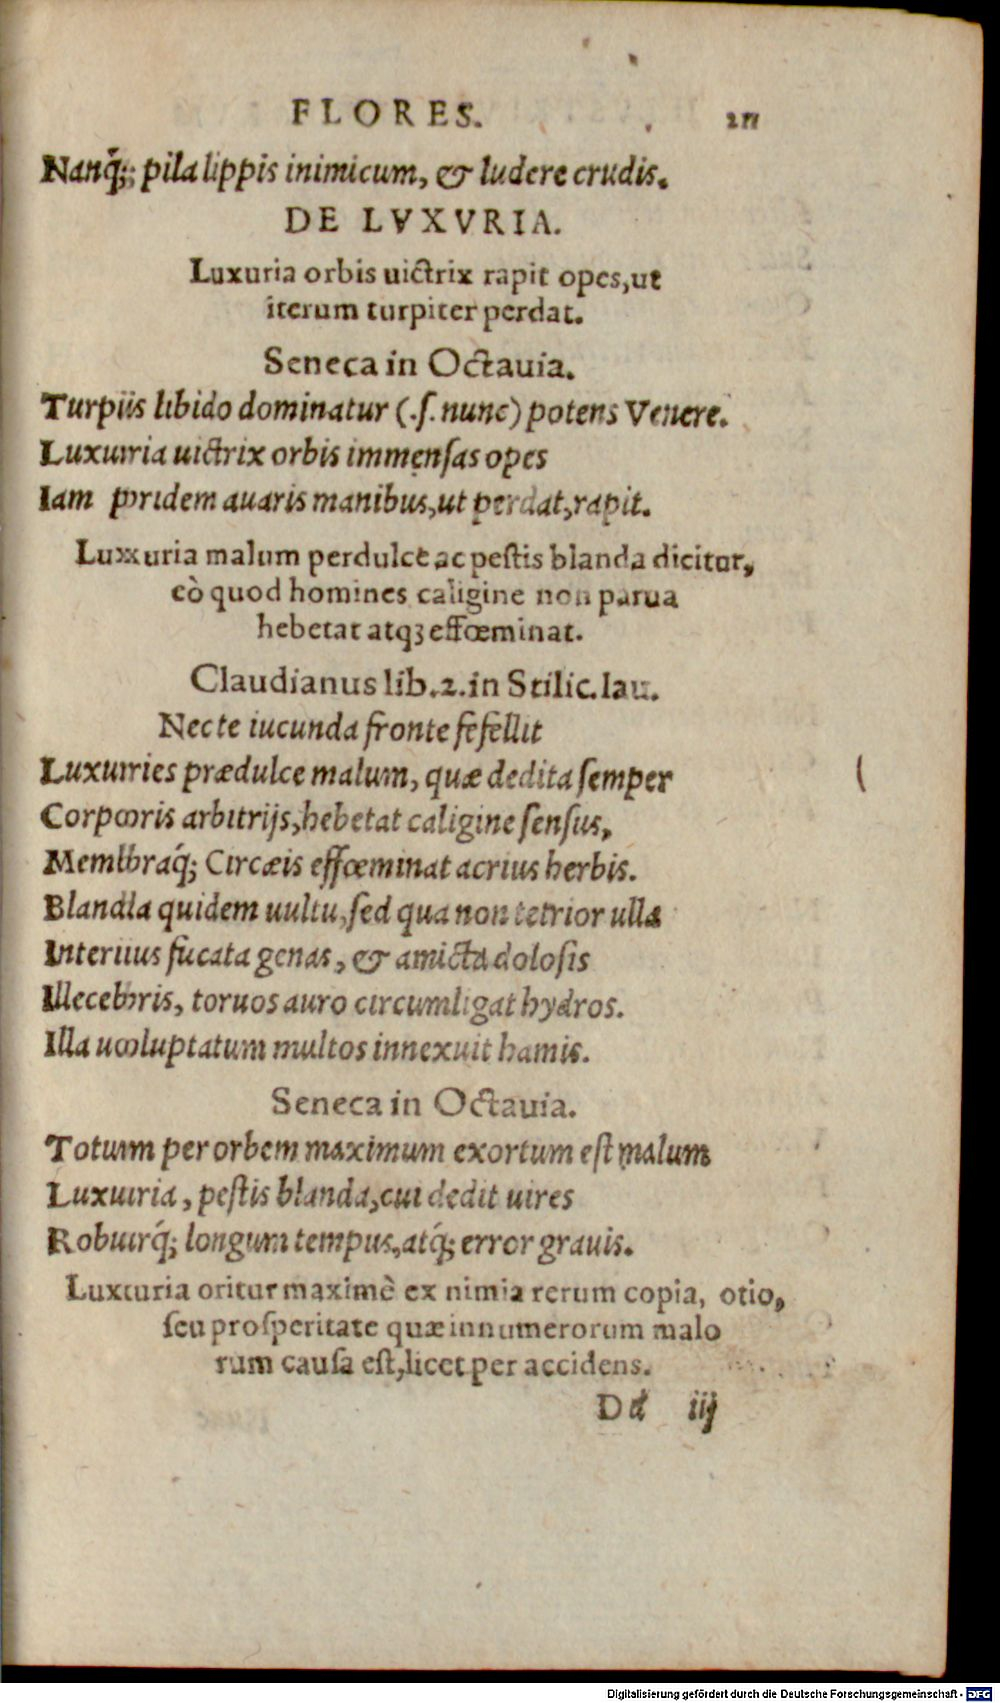 FLORES. 211
Nanq́;; pila lippis inimicum, & ludere crudis.
DE LVXVRIA.
Luxuria orbis uictrix rapit opes,ut
iterum turpiter perdat.
Seneca in Octauia.
Turpiis libido dominatur (.ſ. nunc) potens Venere.
Luxuria uictrix orbis immenſas opes
Iam pridem auaris manibus,ut perdat,rapit.
Luxuria malum perdulce ac peſtis blanda dicitur,
eò quod homines caligine non parua
hebetat atqꝫ effœminat.
Claudianus lib.2.in Stilic.lau.
Nec te iucunda fronte fefellit
Luxuries prædulce malum, quæ dedita ſemper
Corporis arbitrijs,hebetat caligine ſenſus,
Membraq́; Circæis effœminat acrius herbis.
Blanda quidem uultu,ſed qua non tetrior ulla
Interius fucata genas, & amicta doloſis
Illecebris, toruos auro circumligat hydros.
Illa uoluptatum multos innexuit hamis.
Seneca in Octauia.
Totum per orbem maximum exortum eſt malum
Luxuria, peſtis blanda,cui dedit uires
Roburq́; longum tempus,atq́; error grauis.
Luxuria oritur maximè ex nimia rerum copia, otio,
ſeu proſperitate quæ innumerorum malo
rum cauſa eſt,licet per accidens.
Dd iij
Digitalisierung gefördert durch die Deutsche Forschungsgemeinschaft - DFG